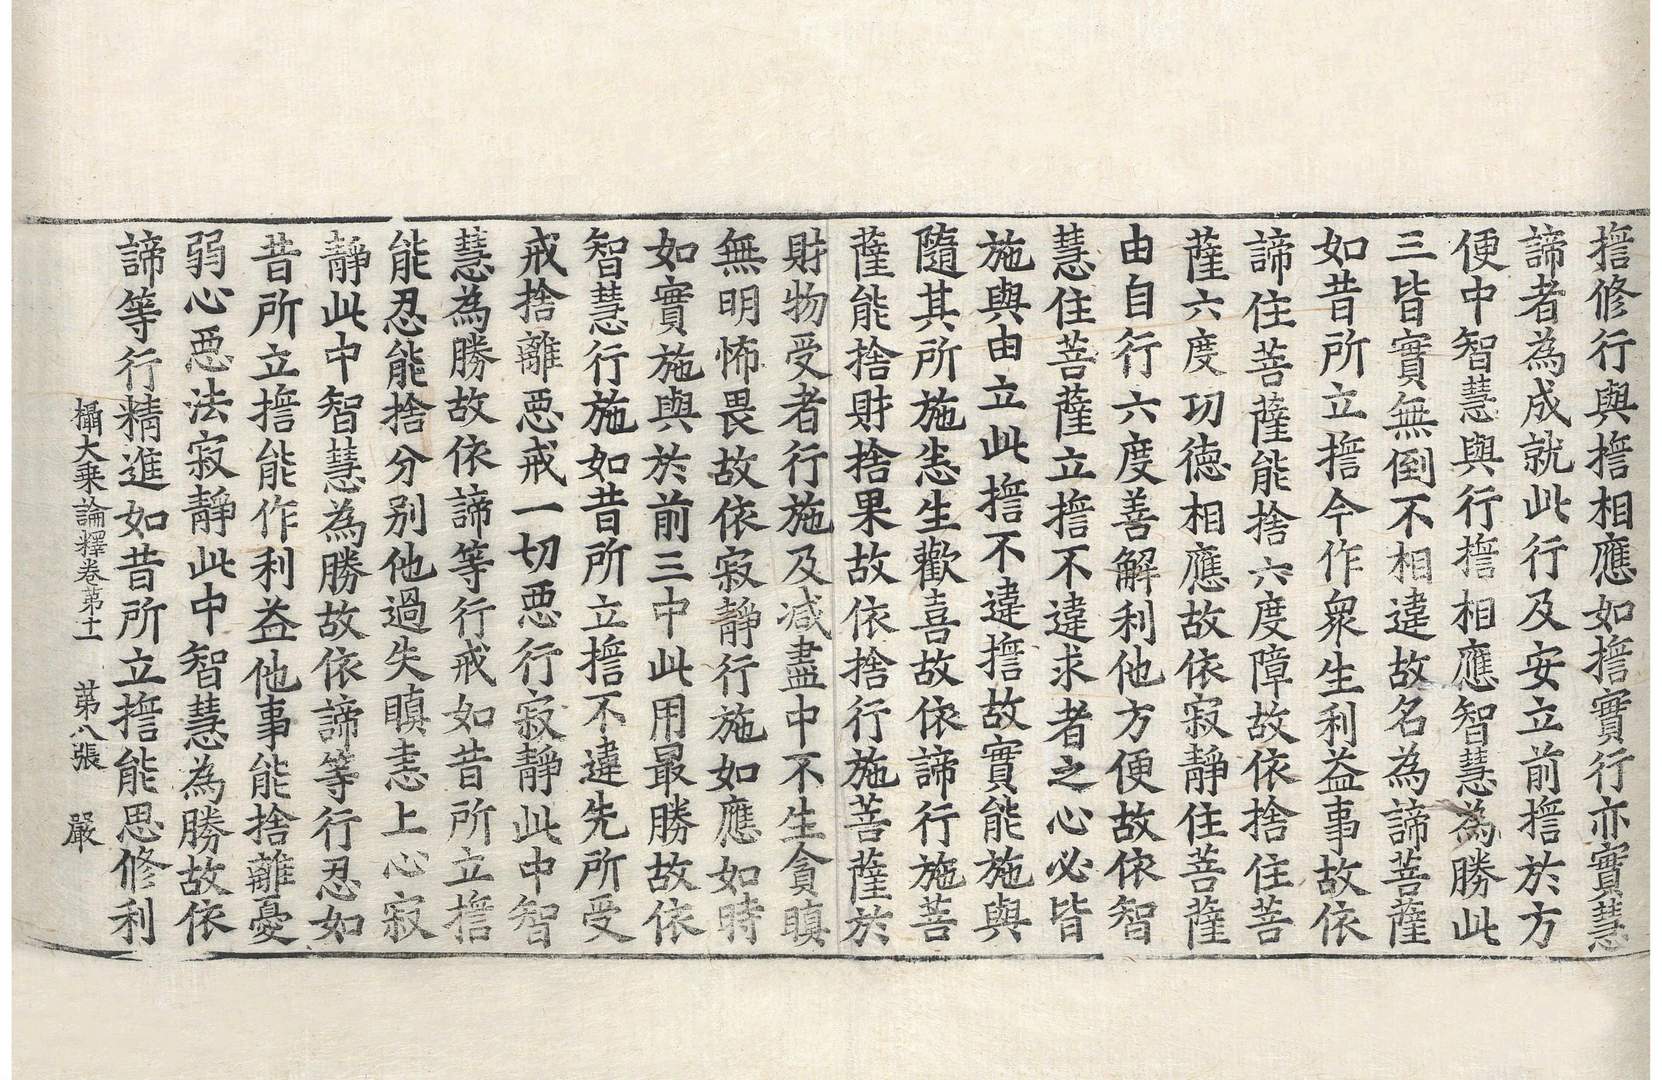 㨾修行與㨾相應如㨾實行亦實慧
諦者為成就此行及安立前㨾於方
便中智慧與行㨾相應智慧為勝此
三皆實無倒不相違故名為諦菩薩
如昔所立㨾今作衆生利益事故依
諦住菩薩能捨六度障故依捨住菩
薩六度功德相應故依寂靜住菩薩
由自行六度善解利他方便故依智
慧住菩薩立㨾不違求者之心必皆
施與由立此㨾不違㨾故實能施與
隨其所施恙生歡喜故依諦行施菩
薩能捨財捨果故依捨行施菩薩於
財物受者行施及减盡中不生貪瞋
無明怖畏故依寂靜行施如應如時
如實施與於前三中此用最勝故依
智慧行施如昔所立㨾不違先所受
戒捨離惡戒一切惡行寂靜此中智
慧為勝故依諦等行戒如昔所立㨾
能忍能捨分別他過失瞋恚上心寂
靜此中智慧為勝故依諦等行忍如
昔所立㨾能作利益他事能捨離憂
弱心惡法寂靜此中智慧為勝故依
諦等行精進如昔所立㨾能思修利
攝大乗論釋卷第十一　第八張　嚴